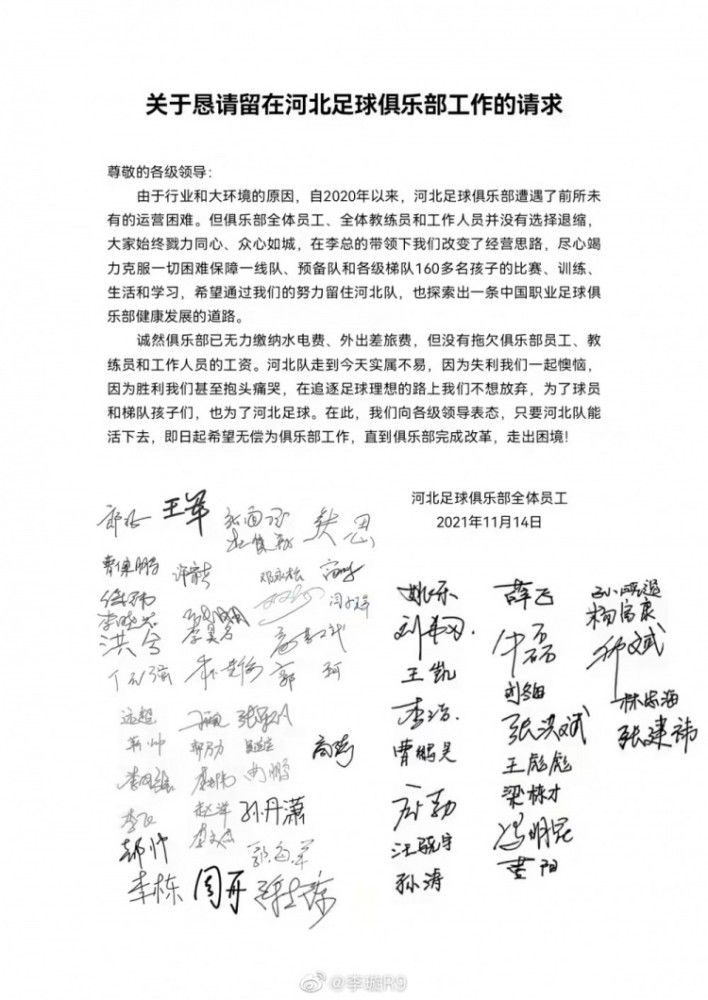 关于恳请留在河北足球俱乐部工作的请求
尊敬的各级领导:
由于行业和大环境的原因，自2020年以来，河北足球俱乐部遭遇了前所未
有的运营困难。但俱乐部全体员工、全体教练员和工作人员并没有选择退缩，
大家始终戮力同心、众心如城，在李总的带领下我们改变了经营思路，尽心竭
力克服一切困难保障一线队、预备队和各级梯队160多名孩子的比赛、训练、
生活和学习，希望通过我们的努力留住河北队，也探索出一条中国职业足球俱
乐部健康发展的道路。
诚然俱乐部已无力缴纳水电费、外出差旅费，但没有拖欠俱乐部员工、教
练员和工作人员的工资。河北队走到今天实属不易，因为失利我们一起懊恼，
因为胜利我们甚至抱头痛哭，在追逐足球理想的路上我们不想放弃，为了球员
和梯队孩子们，也为了河北足球。在此，我们向各级领导表态，只要河北队能
活下去，即日起希望无偿为俱乐部工作，直到俱乐部完成改革，走出困境!
河北足球俱乐部全体员工
2021年11月14日
王军
洪兮
郭珂
远超
孙丹潇
李栋 周开
姚乐 薛飞
杨富康
王凯
李浩 张洪斌 林志海
曹鹏昊 张建祎
王彪彪
梁栋才
汪骁宇 冯明昆
孙涛 黄阳
@李璇R9